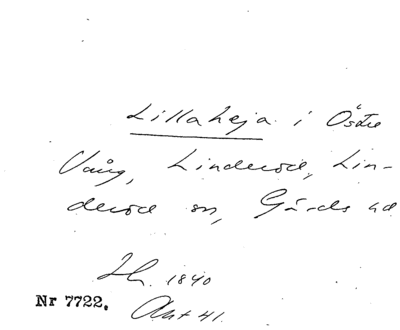 Lillaheja i Östre
Vång, Linderöd, Lin-
deröd sn, Gärds hd
Lh. 1840
Nr 7722. Akt 41.